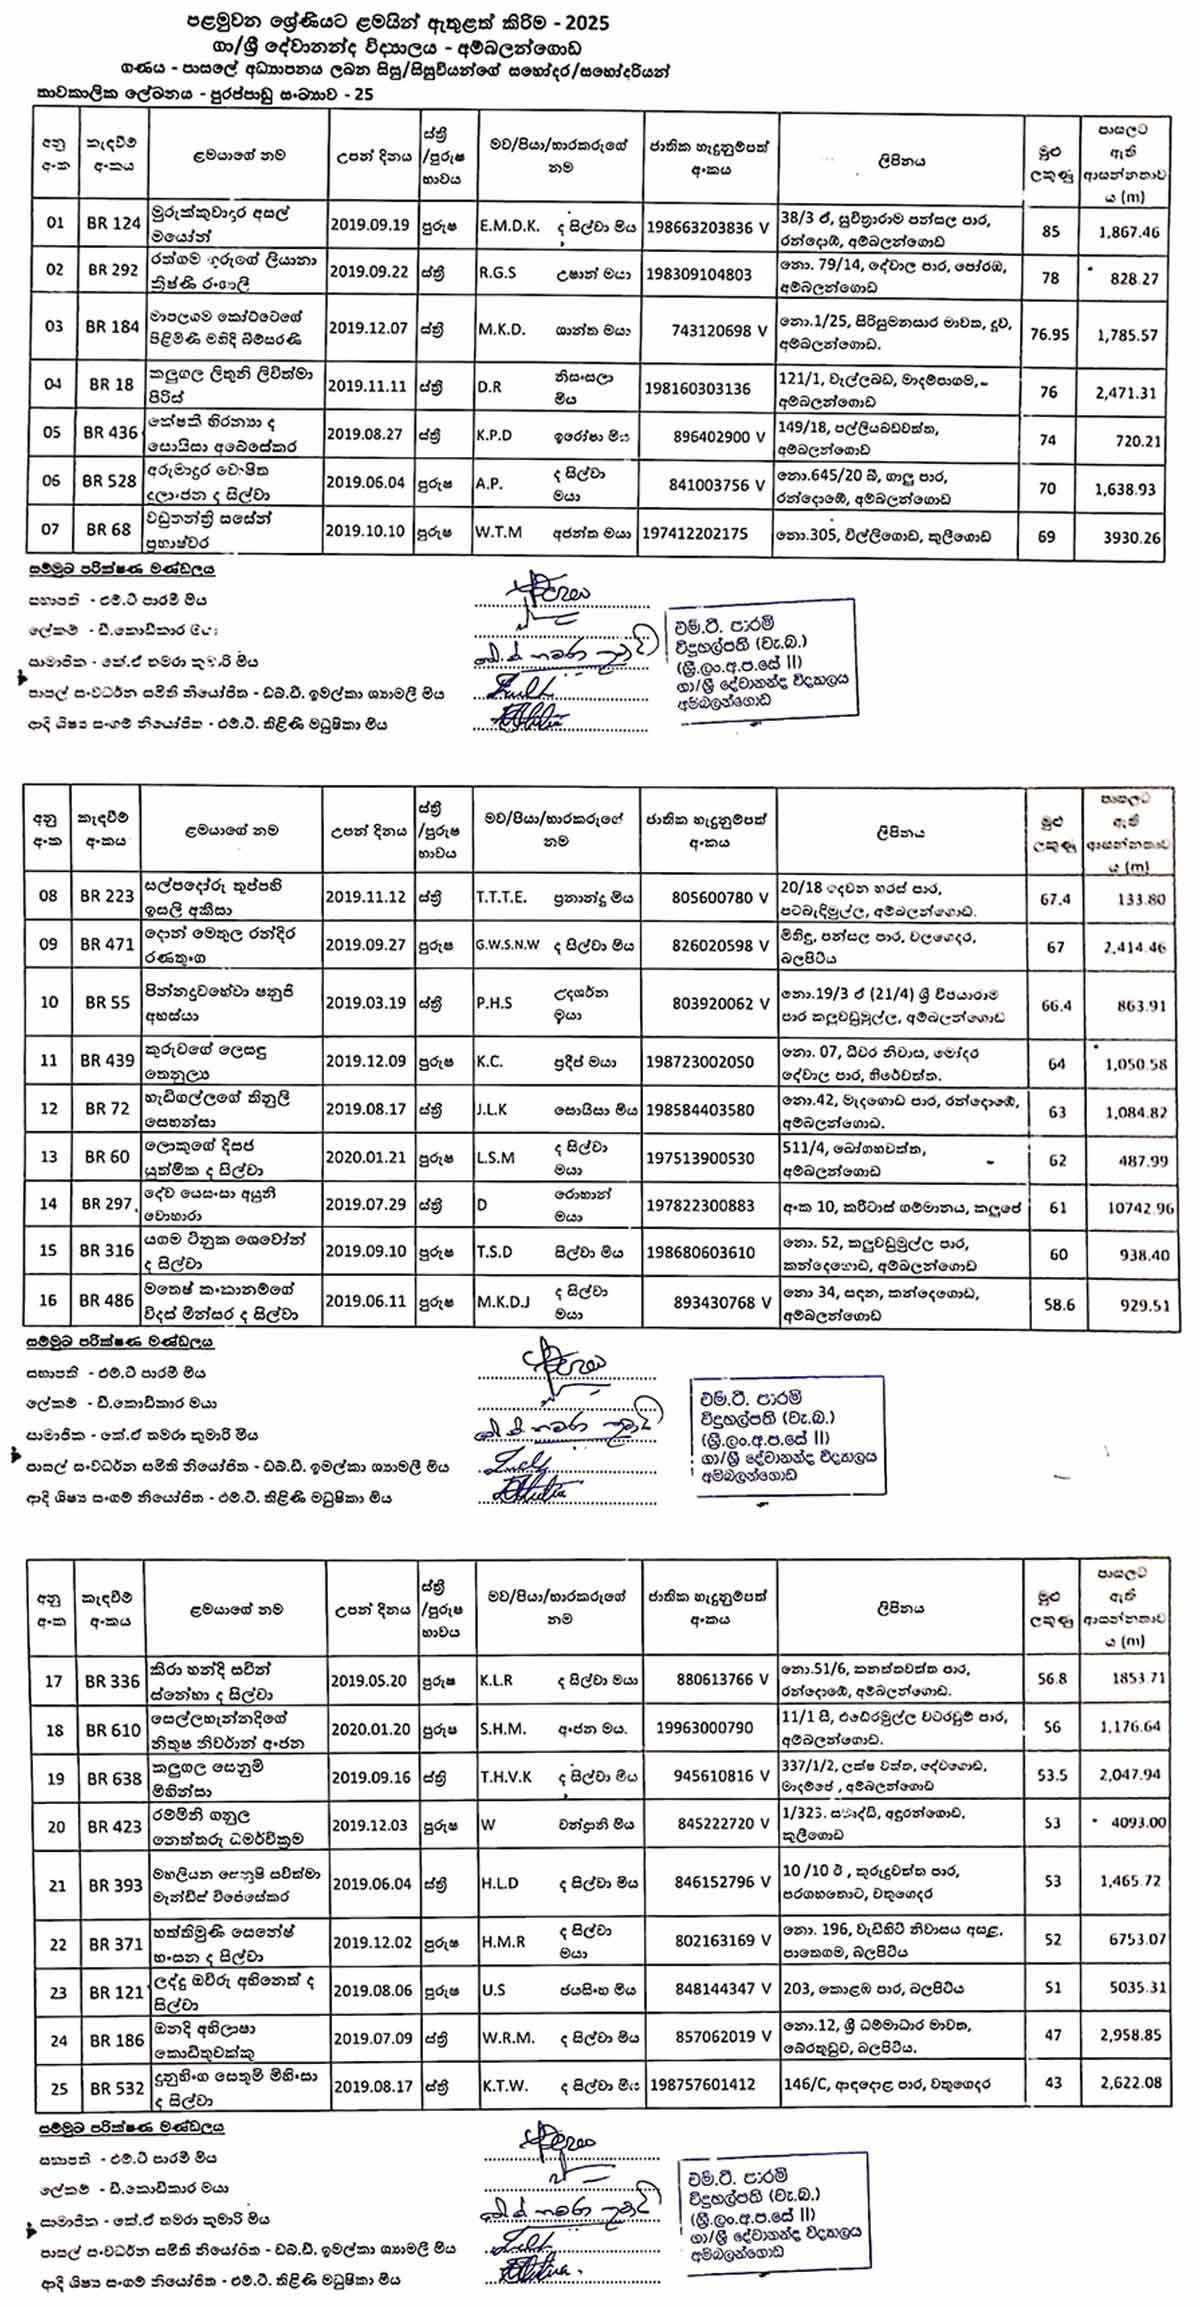 පළමුවන ශ්‍රේණියට ළමයින් ඇතුළත් කිරීම - 2025
ගා/ශ්‍රී දේවානන්ද විද්‍යාලය - අම්බලන්ගොඩ
ගණය - පාසලේ අධ්‍යාපනය ලබන සිසු/සිසුවියන්ගේ සහෝදර/සහෝදරියන්
තාවකාලික ලේඛනය - පුරප්පාඩු සංඛ්‍යාව - 25
අනු අංක කැඳවීම් අංකය ළමයාගේ නම උපන් දිනය ස්ත්‍රී /පුරුෂ භාවය මව/පියා/භාරකරුගේ නම ජාතික හැඳුනුම්පත් අංකය ලිපිනය මුළු ලකුණු පාසලට ඇති ආසන්නතාවය (m)
01 BR 124 මුරුක්කුවාදුර අසල් මයෝන් 2019.09.19 පුරුෂ E.M.D.K. ද සිල්වා මිය 198663203836 V 38/3 ඒ, සුචිත්‍රාරාම පන්සල පාර, රන්දොඹේ, අම්බලන්ගොඩ 85 1,867.46
02 BR 292 රත්ගම ගුරුගේ ලියානා ක්‍රිෂ්ණි 2019.09.22 ස්ත්‍රී R.G.S උෂාන් මයා 198309104803 නො. 79/14, දේවාල පාර, පෝරඹ, අම්බලන්ගොඩ 78 828.27
03 BR 184 මාපලගම කෝට්ටෙගේ පිළිමිණි මහිදි බිම්සරණි 2019.12.07 ස්ත්‍රී M.K.D. ශාන්ත මයා 743120698 V නො.1/25, සිරිසුමනසාර මාවත, දූව, අම්බලන්ගොඩ. 76.95 1,785.57
04 BR 18 කලුගල ලිතුනි ලිවිත්මා පීරිස් 2019.11.11 ස්ත්‍රී D.R නිසංසලා මිය 198160303136 121/1, වැල්ලබඩ, මාදම්පාගම, අම්බලන්ගොඩ 76 2,471.31
05 BR 436 කේෂකී හිරන්‍යා ද සොයිසා අබේසේකර 2019.08.27 ස්ත්‍රී K.P.D ඉරෝෂා මිය 896402900 V 149/18, පල්ලියබඩවත්ත, අම්බලන්ගොඩ 74 720.21
06 BR 528 අරුමාදුර ද සිල්වා 2019.06.04 පුරුෂ A.P. ද සිල්වා මයා 841003756 V නො.645/20 බී, ගාලු පාර, රන්දොඹේ, අම්බලන්ගොඩ 70 1,638.93
07 BR 68 වඩුතන්ත්‍රි සසේන් ප්‍රභාෂ්වර 2019.10.10 පුරුෂ W.T.M අජන්ත මයා 197412202175 නො.305, විල්ලිගොඩ, කුලීගොඩ 69 3930.26
සම්මුඛ පරීක්ෂණ මණ්ඩලය
සභාපති - එම්.ටී පාරමී මිය
ලේකම් - ඩී.කොඩිකාර මයා
සාමාජික - කේ.ඒ තමරා කුමාරි මිය
පාසල් සංවර්ධන සමිති නියෝජිත - ඩබ්.ඩී. ඉමල්කා ශ්‍යාමලී මිය
ආදි ශිෂ්‍ය සංගම් නියෝජිත - එම්.ටී. තිළිණි මධුෂිකා මිය
එම්.ටී. පාරමී
විදුහල්පති (වැ.බ.)
(ශ්‍රී.ලං.අ.ප.සේ II)
ගා/ශ්‍රී දේවානන්ද විද්‍යාලය
අම්බලන්ගොඩ
අනු අංක කැඳවීම් අංකය ළමයාගේ නම උපන් දිනය ස්ත්‍රී /පුරුෂ භාවය මව/පියා/භාරකරුගේ නම ජාතික හැඳුනුම්පත් අංකය ලිපිනය මුළු ලකුණු පාසලට ඇති ආසන්නතාවය (m)
08 BR 223 සල්පදෝරු තුප්පහි ඉසලි අකීසා 2019.11.12 ස්ත්‍රී T.T.T.E. ප්‍රනාන්දු මිය 805600780 V 20/18 දෙවන හරස් පාර, පටබැඳිමුල්ල, අම්බලන්ගොඩ. 67.4 133.80
09 BR 471 දොන් මෙතුල රන්දිර රණතුංග 2019.09.27 පුරුෂ G.W.S.N.W ද සිල්වා මිය 826020598 V මිහිඳු, පන්සල පාර, වලගෙදර, බලපිටිය 67 2,414.46
10 BR 55 පින්නදූවහේවා ෂනුජි අහස්යා 2019.03.19 ස්ත්‍රී P.H.S උදර්ශන මයා 803920062 V නො.19/3 ඒ (21/4) ශ්‍රී විජයාරාම පාර කලුවඩුමුල්ල, අම්බලන්ගොඩ 66.4 863.91
11 BR 439 කුරුවගේ ලෙසඳු තෙනුල්‍ය 2019.12.09 පුරුෂ K.C. ප්‍රදීප් මයා 198723002050 නො. 07, ධීවර නිවාස, මෝදර දේවාල පාර, හීරේවත්ත. 64 1,050.58
12 BR 72 හැඩිගල්ලගේ කිනුලි සෙහන්සා 2019.08.17 ස්ත්‍රී J.L.K සොයිසා මිය 198584403580 නො.42, මැදගොඩ පාර, රන්දොඹේ, අම්බලන්ගොඩ. 63 1,084.82
13 BR 60 ලොකුගේ දිසජ යුත්මික ද සිල්වා 2020.01.21 පුරුෂ L.S.M ද සිල්වා මයා 197513900530 511/4, බෝගහවත්ත, අම්බලන්ගොඩ 62 487.99
14 BR 297 දේව යෙසංසා අයුනි වොහාරා 2019.07.29 ස්ත්‍රී D රොහාන් මයා 197822300883 අංක 10, කරිටාස් ගම්මානය, කලුපේ 61 10742.96
15 BR 316 යගම ටිනුක ශෙවෝන් ද සිල්වා 2019.09.10 පුරුෂ T.S.D සිල්වා මිය 198680603610 නො. 52, කලුවඩුමුල්ල පාර, කන්දෙගොඩ, අම්බලන්ගොඩ 60 938.40
16 BR 486 මතෙෂ් කංකානම්ගේ විදස් මින්සර ද සිල්වා 2019.06.11 පුරුෂ M.K.D.J ද සිල්වා මයා 893430768 V නො 34, සඳන, කන්දෙගොඩ, අම්බලන්ගොඩ 58.6 929.51
සම්මුඛ පරීක්ෂණ මණ්ඩලය
සභාපති - එම්.ටී පාරමී මිය
ලේකම් - ඩී.කොඩිකාර මයා
සාමාජික - කේ.ඒ තමරා කුමාරි මිය
පාසල් සංවර්ධන සමිති නියෝජිත - ඩබ්.ඩී. ඉමල්කා ශ්‍යාමලී මිය
ආදි ශිෂ්‍ය සංගම් නියෝජිත - එම්.ටී. තිළිණි මධුෂිකා මිය
එම්.ටී. පාරමී
විදුහල්පති (වැ.බ.)
(ශ්‍රී.ලං.අ.ප.සේ II)
ගා/ශ්‍රී දේවානන්ද විද්‍යාලය
අම්බලන්ගොඩ
අනු අංක කැඳවීම් අංකය ළමයාගේ නම උපන් දිනය ස්ත්‍රී /පුරුෂ භාවය මව/පියා/භාරකරුගේ නම ජාතික හැඳුනුම්පත් අංකය ලිපිනය මුළු ලකුණු පාසලට ඇති ආසන්නතාවය (m)
17 BR 336 කිරා හන්දි සවින් ස්නේහා ද සිල්වා 2019.05.20 පුරුෂ K.L.R ද සිල්වා මයා 880613766 V නො.51/6, කනත්තවත්ත පාර, රන්දොඹේ, අම්බලන්ගොඩ. 56.8 1853.71
18 BR 610 සෙල්ලහැන්නදිගේ නිතුෂ නිවර්ාන් අංජන 2020.01.20 පුරුෂ S.H.M. අංජන මය. 19963000790 11/1 සී, එඬේරමුල්ල වටරවුම් පාර, අම්බලන්ගොඩ. 56 1,176.64
19 BR 638 කලුගල සෙනුමි මිහින්සා 2019.09.16 ස්ත්‍රී T.H.V.K ද සිල්වා මිය 945610816 V 337/1/2, ලක්ෂ වත්ත, දේවගොඩ, මාදම්පේ , අම්බලන්ගොඩ 53.5 2,047.94
20 BR 423 රම්මිනි ගනුල නෙත්තරු ධර්මවික්‍රම 2019.12.03 පුරුෂ W චන්ද්‍රානි මිය 845222720 V 1/323. අඳුරන්ගොඩ, කුලීගොඩ 53 4093.00
21 BR 393 මහලියන සවිත්මා මැන්ඩිස් විජේසේකර 2019.06.04 ස්ත්‍රී H.L.D ද සිල්වා මිය 846152796 V 10 /10 ඊ , කුරුදුවත්ත පාර, පරගහතොට, වතුගෙදර 53 1,465.72
22 BR 371 හත්තිමුණි සෙනේෂ් හංසන ද සිල්වා 2019.12.02 පුරුෂ H.M.R ද සිල්වා මයා 802163169 V නො. 196, වැඩිහිටි නිවාසය අසළ, පාතෙගම, බලපිටිය 52 6753.07
23 BR 121 ලද්දු ඔවිරු අභිනෙත් ද සිල්වා 2019.08.06 පුරුෂ U.S ජයසිංහ මිය 848144347 V 203, කොළඹ පාර, බලපිටිය 51 5035.31
24 BR 186 ඔනදි අභිලාෂා කොඩිතුවක්කු 2019.07.09 ස්ත්‍රී W.R.M. ද සිල්වා මිය 857062019 V නො.12, ශ්‍රී ධම්මාධාර මාවත, බේරතුඩුව, බලපිටිය. 47 2,958.85
25 BR 532 දුනුහිංග සෙතුමි මිහිංසා ද සිල්වා 2019.08.17 ස්ත්‍රී K.T.W. ද සිල්වා මිය 198757601412 146/C, ආඳදොළ පාර, වතුගෙදර 43 2,622.08
සම්මුඛ පරීක්ෂණ මණ්ඩලය
සභාපති - එම්.ටී පාරමී මිය
ලේකම් - ඩී.කොඩිකාර මයා
සාමාජික - කේ.ඒ තමරා කුමාරි මිය
පාසල් සංවර්ධන සමිති නියෝජිත - ඩබ්.ඩී. ඉමල්කා ශ්‍යාමලී මිය
ආදි ශිෂ්‍ය සංගම් නියෝජිත - එම්.ටී. තිළිණි මධුෂිකා මිය
එම්.ටී. පාරමී
විදුහල්පති (වැ.බ.)
(ශ්‍රී.ලං.අ.ප.සේ II)
ගා/ශ්‍රී දේවානන්ද විද්‍යාලය
අම්බලන්ගොඩ